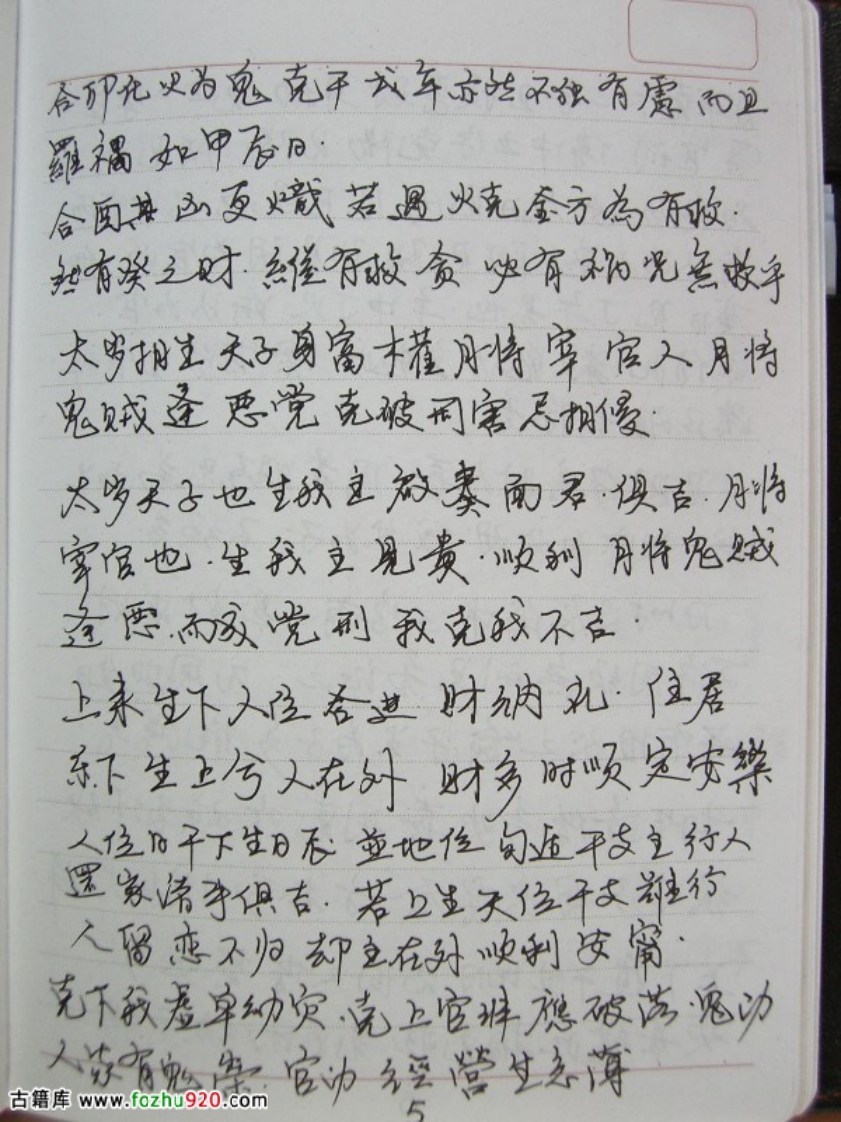 合卯化火为鬼 克干 戊年亦然不独有慮而且
羅禍 如甲辰日.
合酉其凶更熾 若遇火克金方為有救.
然有癸之财. 縱有救 贪必有祸况無救乎
太岁相生天子身富 權月将宰官人月将
鬼贼逢恶党克破刑害忌相侵.
太岁天子也生我主啟奏面君.俱吉.月将
宰官也.生我主見貴.順利 月将鬼贼
逢恶.而成党刑我克我不吉.
上来生下人位 進财纳礼.住居
下生上兮人在外 财多时顺定安樂
人位日干下生日辰 並地位 干支主行人
還家诸事俱吉. 若上生天位干支 主行
人留恋不归 却主在外顺利安甯.
克下我卑幼灾.克上官 應破落 鬼动
人家有鬼祟.官动經營生意薄
5
古籍库 www.fozhu920.com